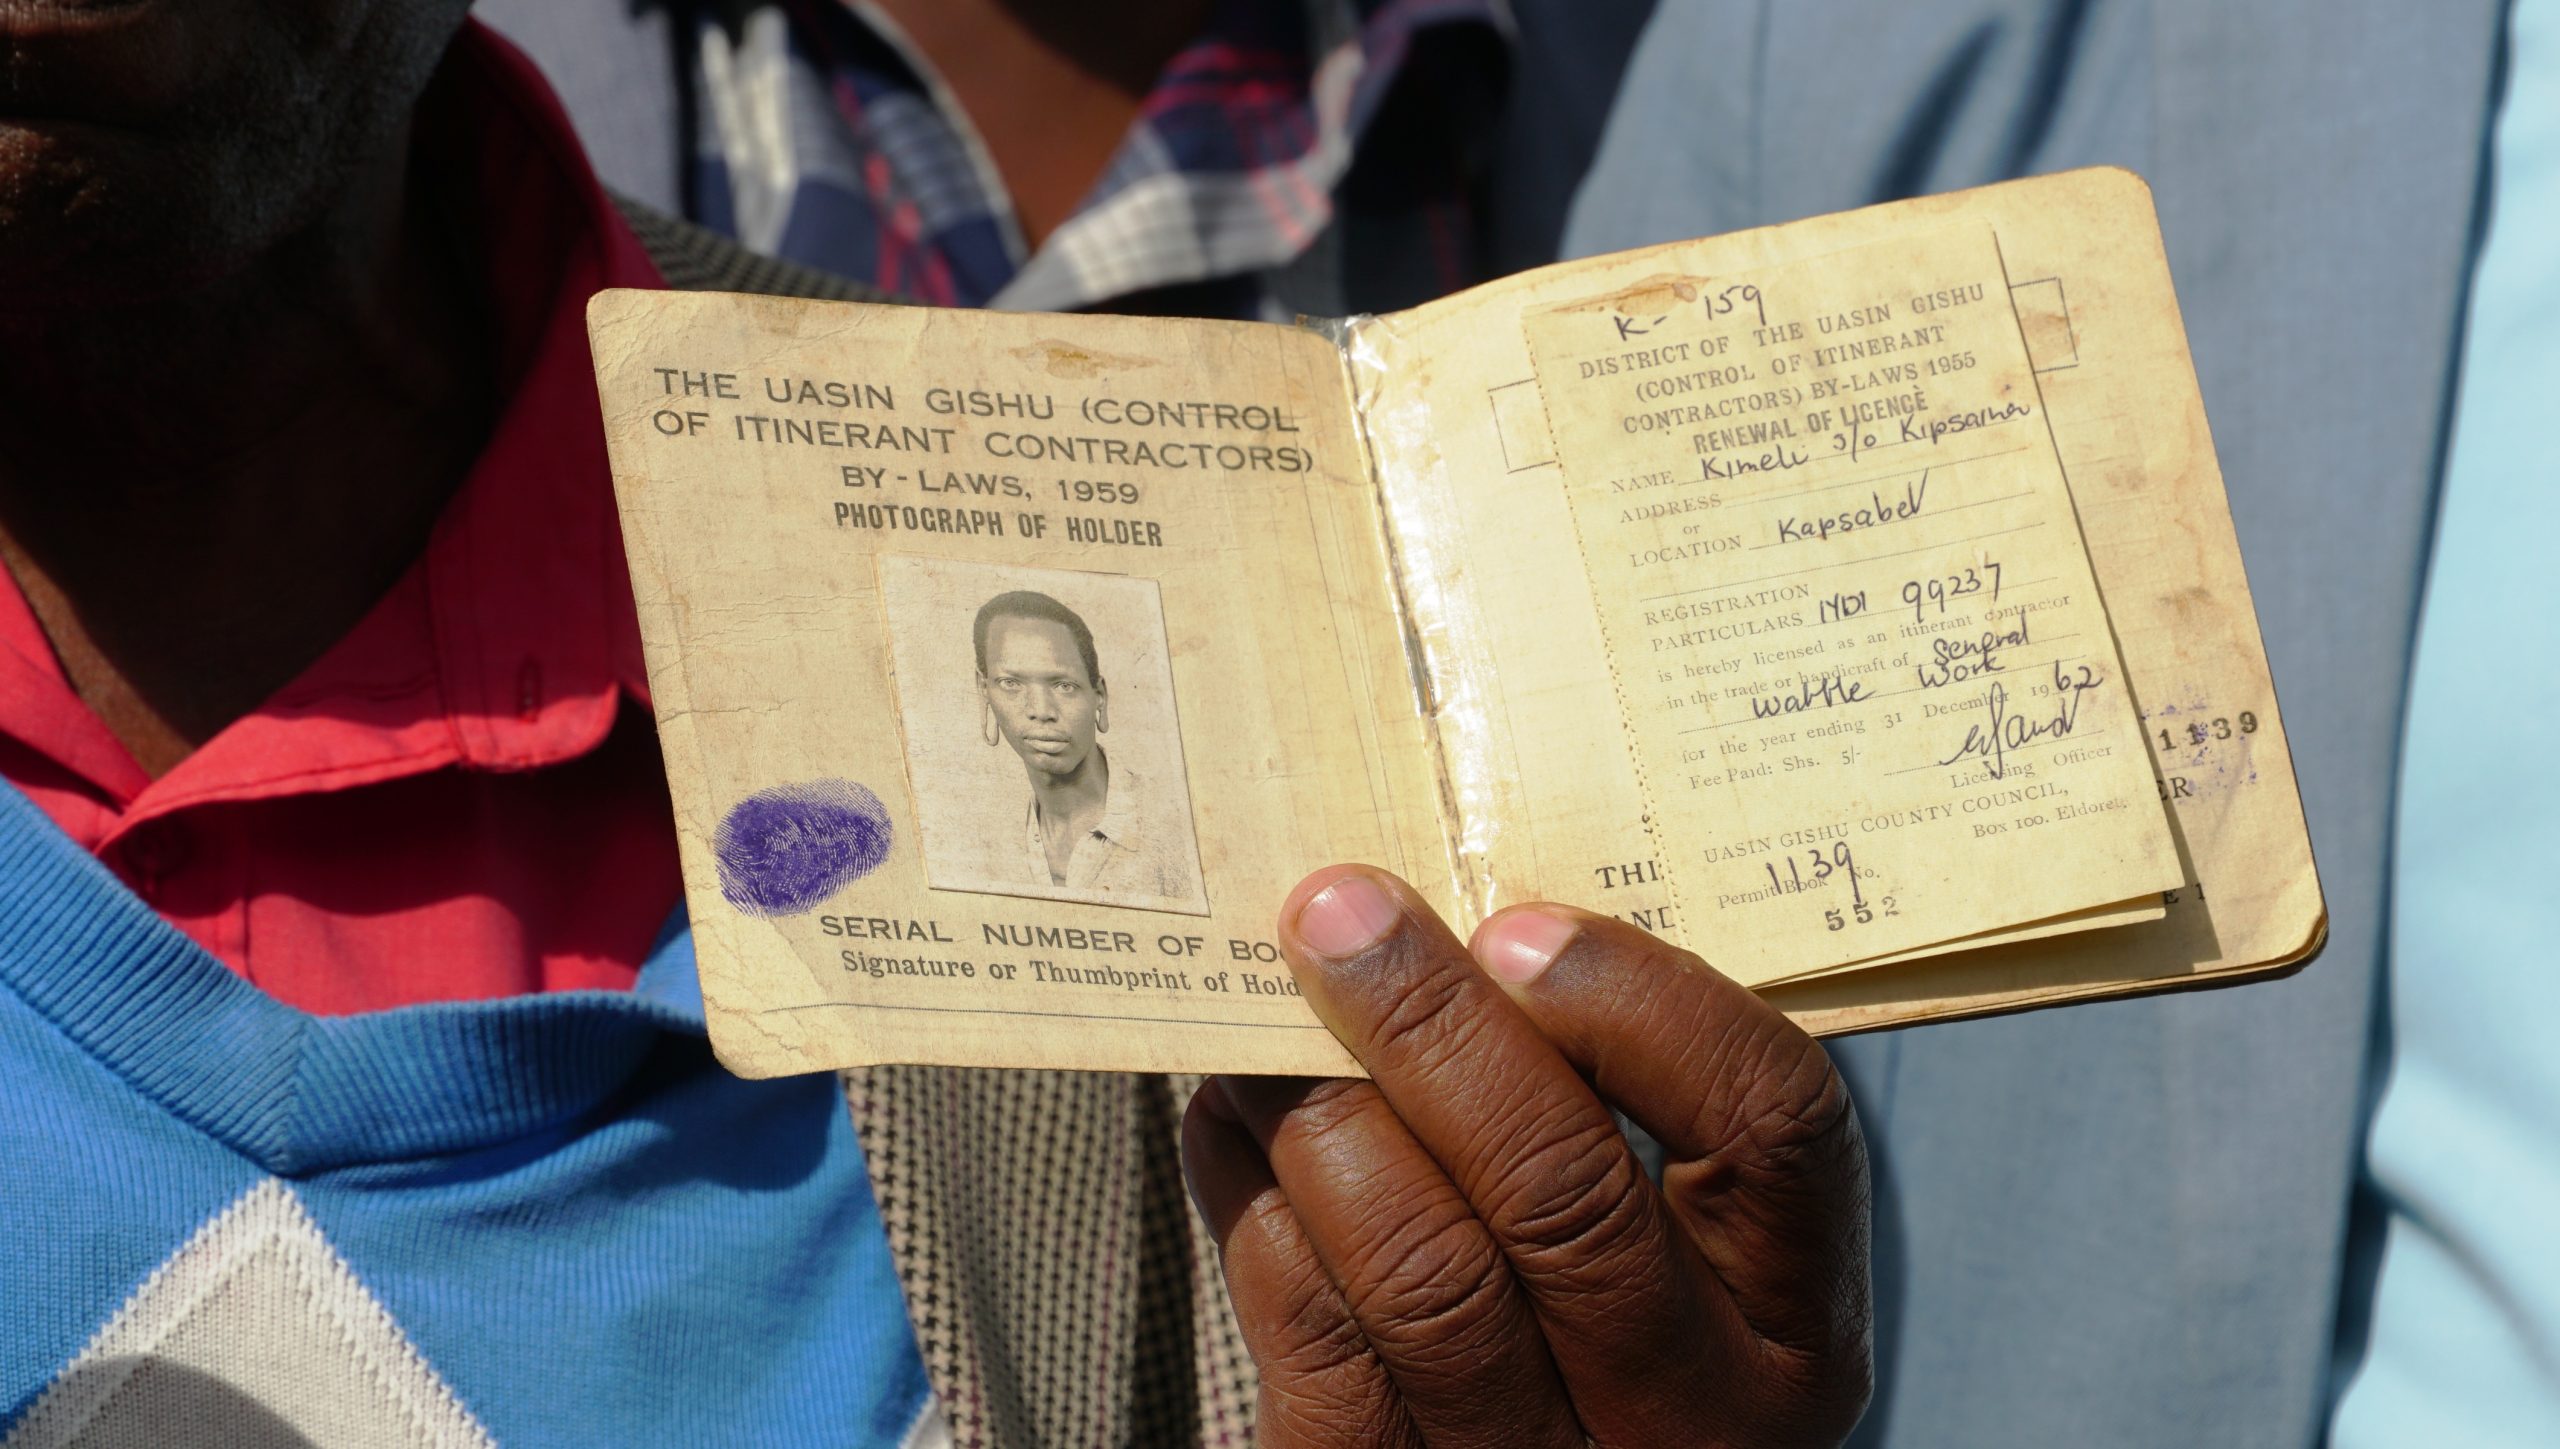 THE UASIN GISHU (CONTROL
OF ITINERANT CONTRACTORS)
BY - LAWS, 1959
PHOTOGRAPH OF HOLDER
SERIAL NUMBER OF BOO
Signature or Thumbprint of Hold
K - 159
DISTRICT OF THE UASIN GISHU
(CONTROL OF ITINERANT
CONTRACTORS) BY-LAWS 1955
RENEWAL OF LICENCE
NAME Kimeli s/o Kipsainer
ADDRESS
or
LOCATION Kapsabet
REGISTRATION
PARTICULARS 99237
is hereby licensed as an itinerant contractor
in the trade or handicraft of General
Wattle Work
for the year ending 31 December 1962
Fee Paid: Shs. 5/-
Licensing Officer
UASIN GISHU COUNTY COUNCIL,
Box 100. Eldoret.
Permit Book No. 1139
552
1139
ER
THI
AND
E